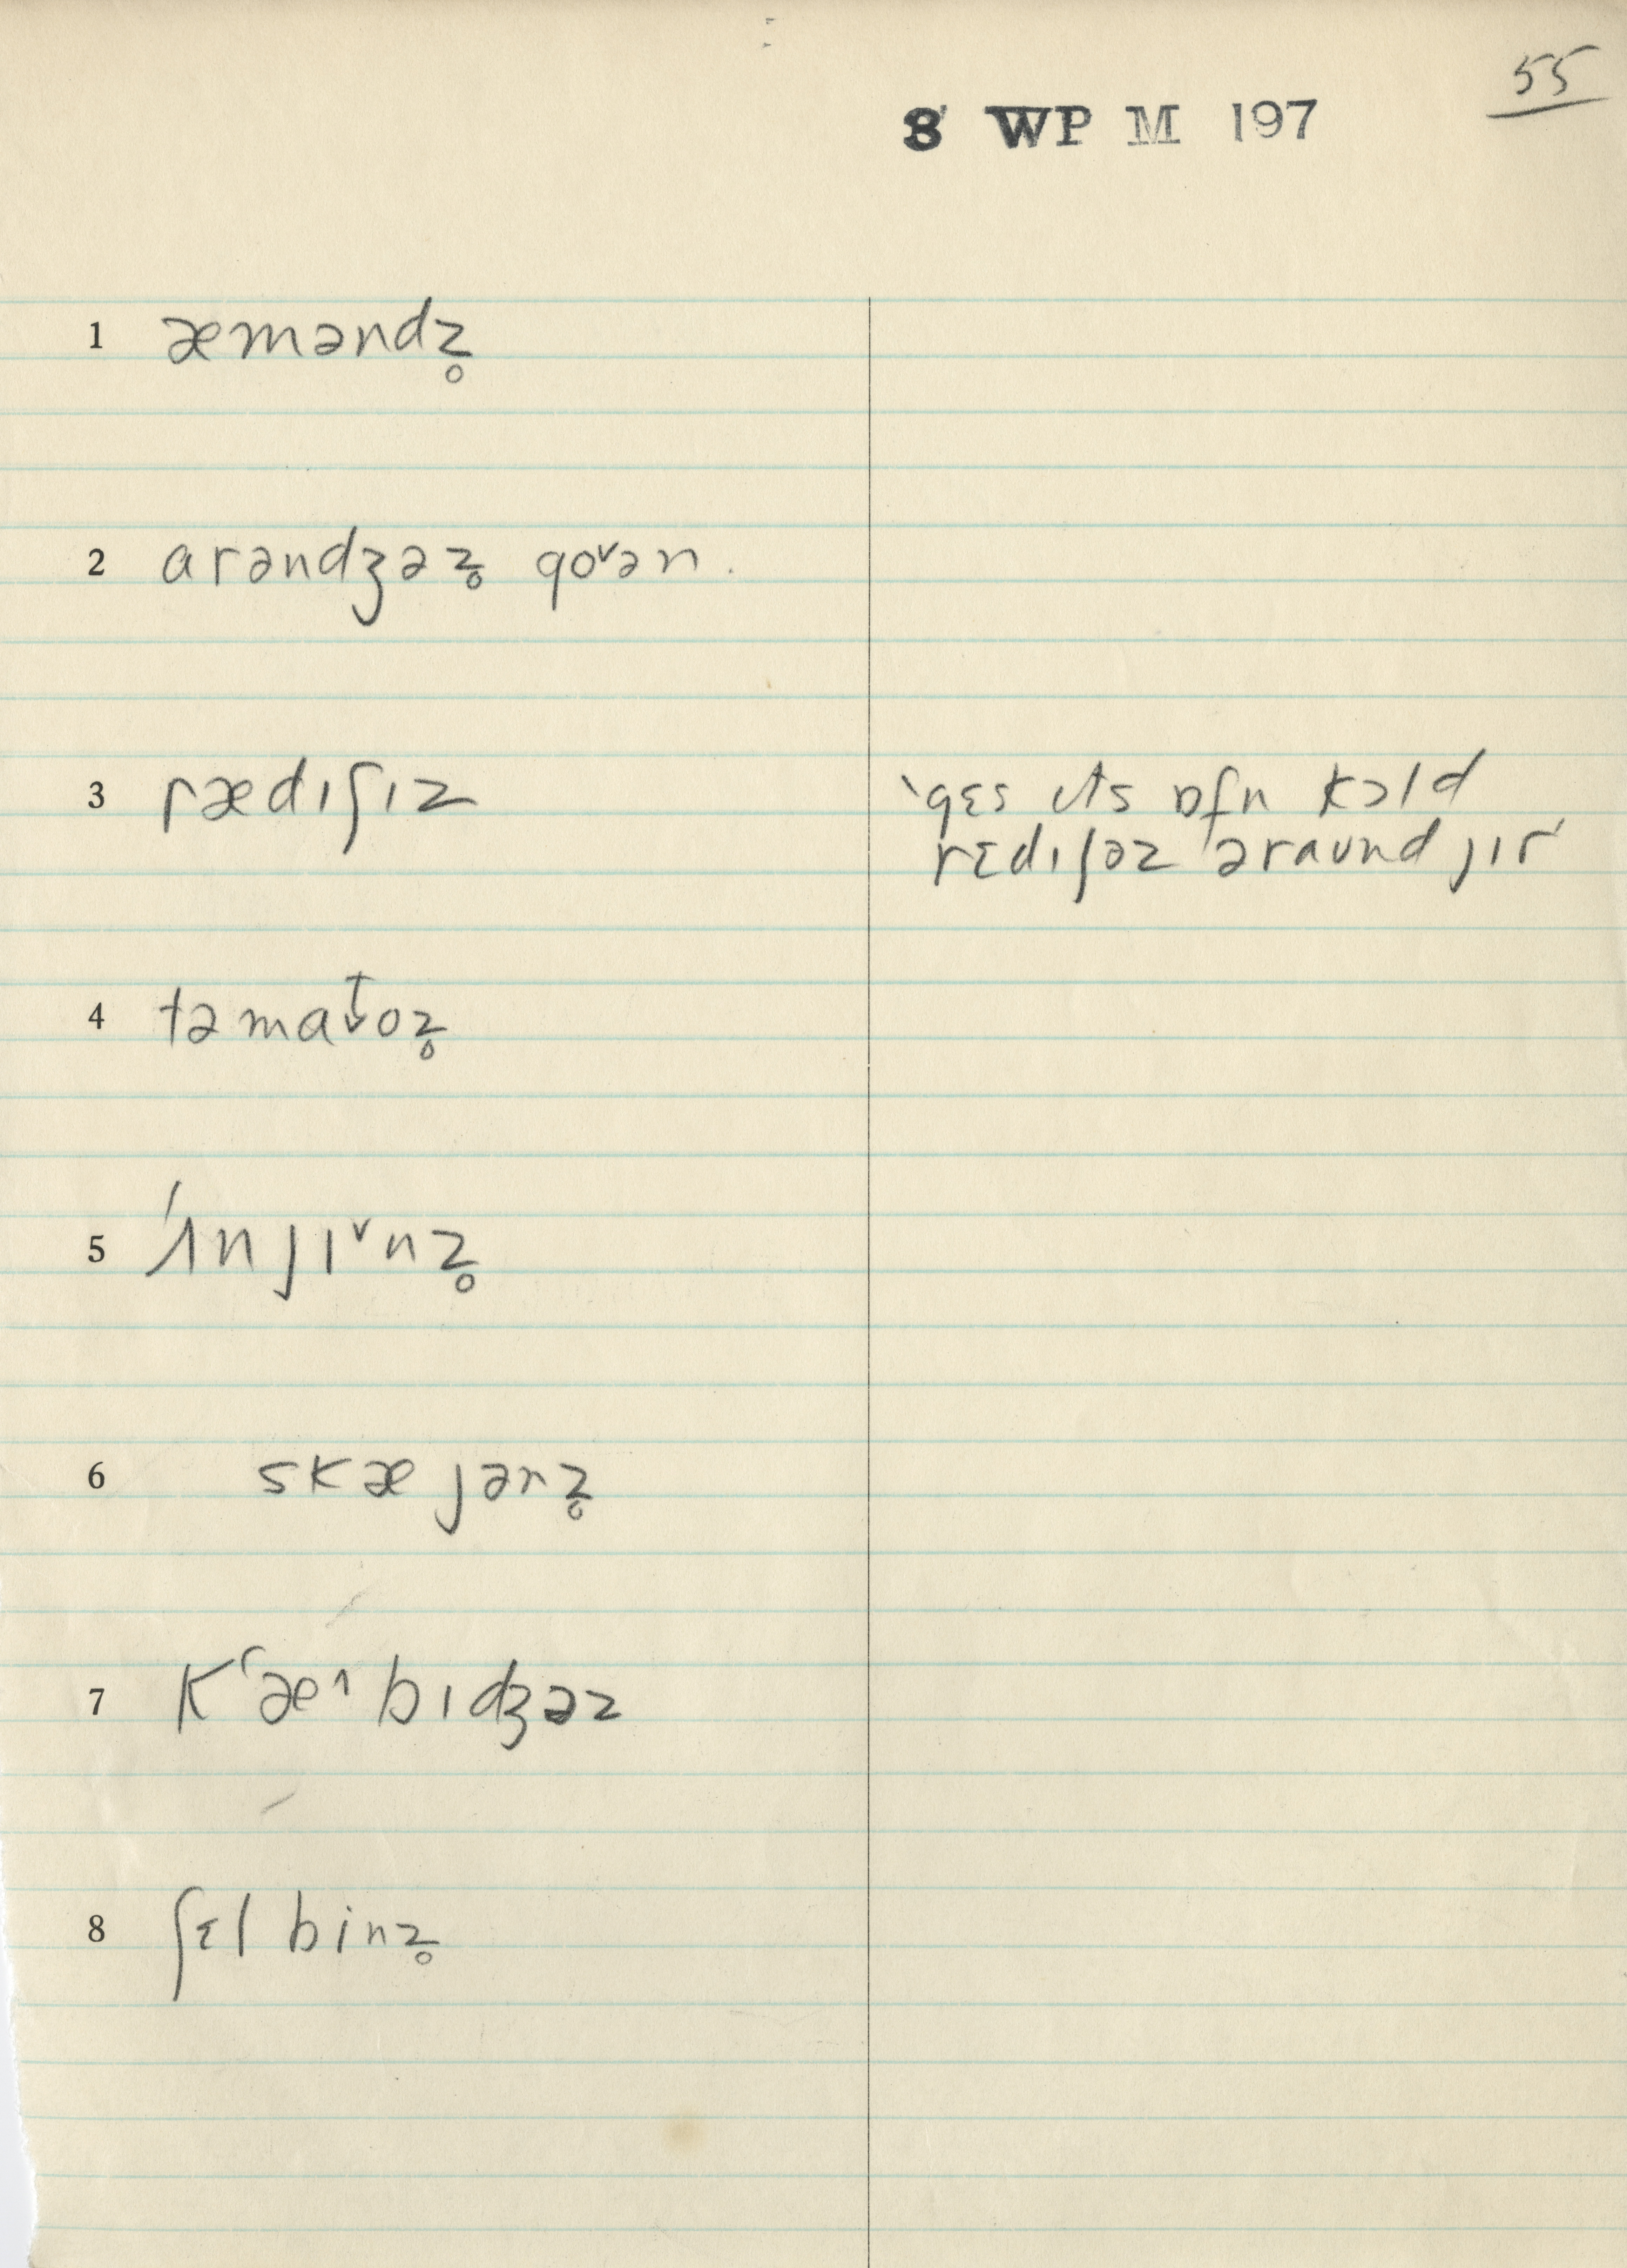 55
8 WP M 197
1 æməndz̥
2 arəndʒəz̥ goᵛən.
3 rædɪʃɪz
ˋgɛs ɪts ɒfn kɔld
rɛdɪʃəz əraʊnd jɪr
4 təmat̬oz̥
5 ˊʌnjɪᵛnz̥
6 skæjənz̥
7 kʻæ^bɪdʒəz
8 ʃɛl binz̥